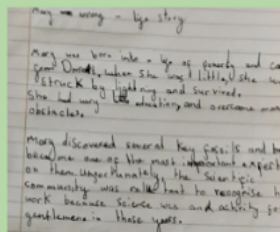 Mary was wrong - life story
Mary was born into a life of poverty and ca
from Dorset, when she was little, she was
struck by lightning and survived.
She had very education, and overcome man
obstacles.
Mary discovered several key fossils and b
became one of the most important expert
on them. Unfortunately, the scientific
community was reluctant to recognise h
work because science was and activity for
gentlemen in those years.